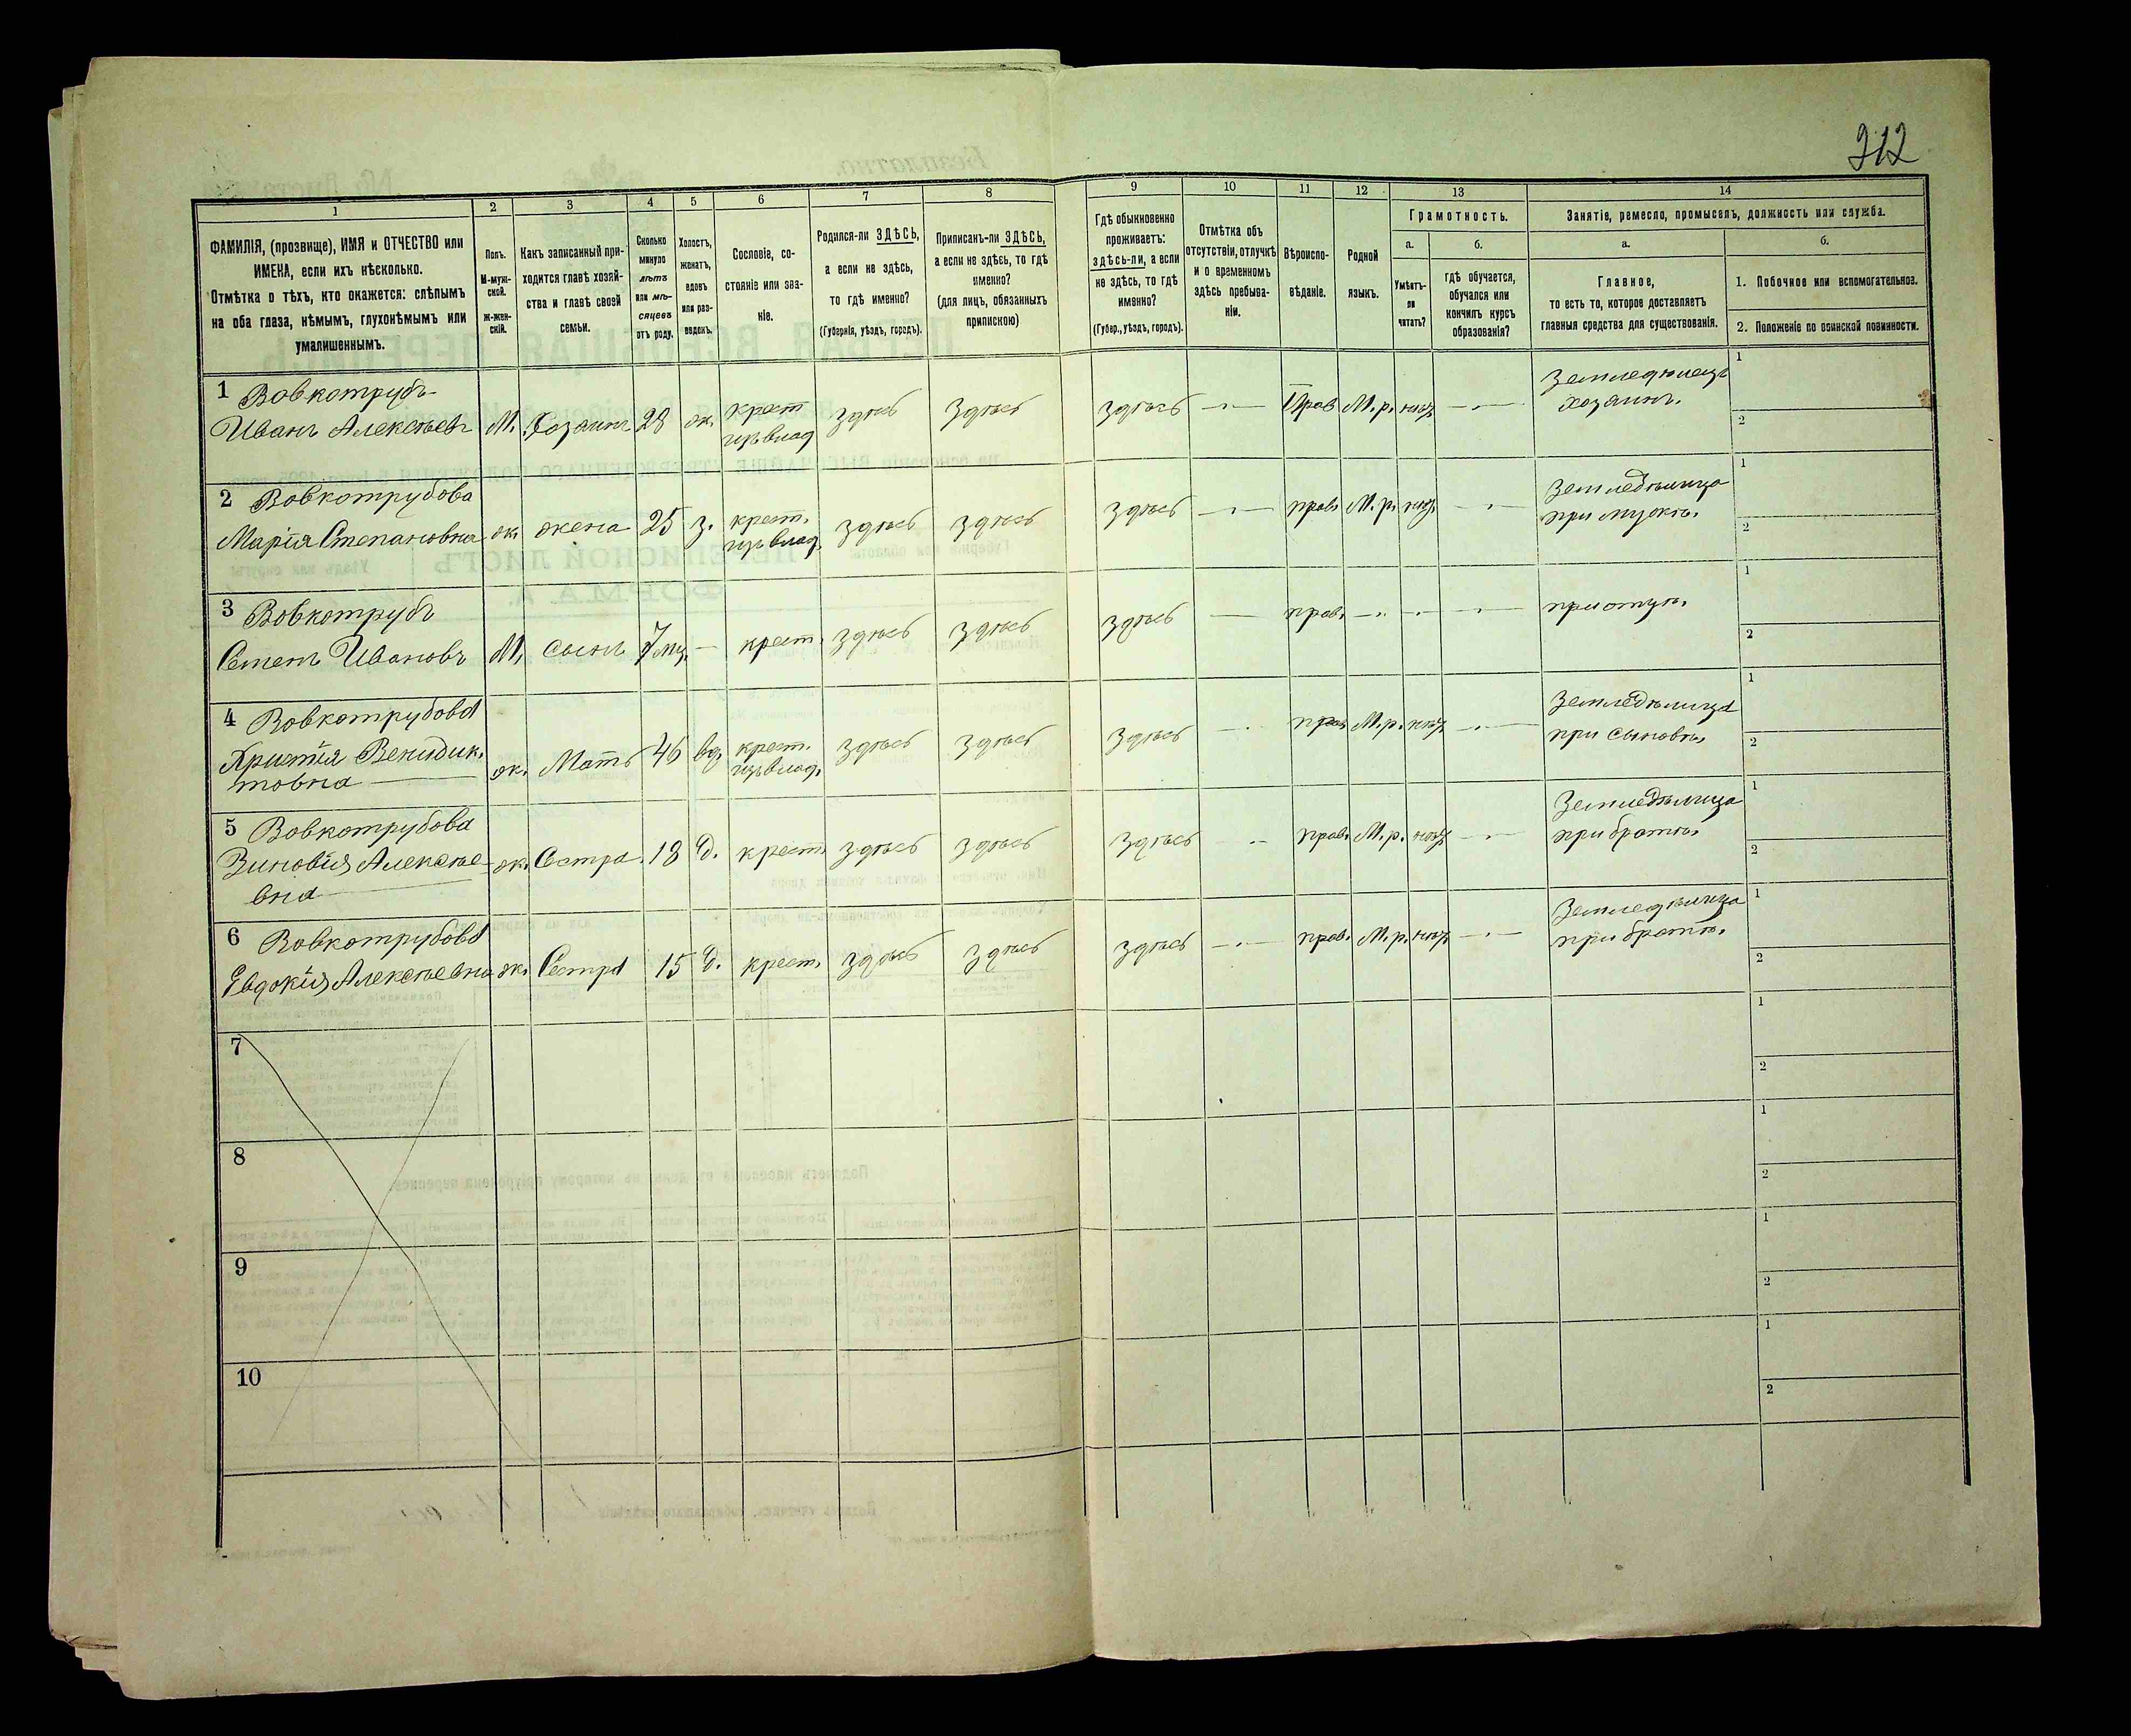 312
1 2 3 4 5 6 7 8 9 10 11 12 13 14
ФАМИЛІЯ, (прозвище), ИМЯ и ОТЧЕСТВО или
ИМЕНА, если ихъ нѣсколько.
Отмѣтка о тѣхъ, кто окажется: слѣпымъ
на оба глаза, нѣмымъ, глухонѣмымъ или
умалишеннымъ.
Полъ.
М-муж-
ской.
Ж-жен-
скій.
Какъ записанный при-
ходится главѣ хозяй-
ства и главѣ своей
семьи.
Сколько
минуло
лѣтъ
или мѣ-
сяцевъ
отъ роду.
Холостъ,
женатъ,
вдовъ
или раз-
веденъ.
Сословіе, со-
стояніе или зва-
ніе.
Родился-ли ЗДѢСЬ,
а если не здѣсь,
то гдѣ именно?
(Губернія, уѣздъ, городъ).
Приписанъ-ли ЗДѢСЬ,
а если не здѣсь, то гдѣ
именно?
(для лицъ, обязанныхъ
припискою)
Гдѣ обыкновенно
проживаетъ:
здѣсь-ли, а если
не здѣсь, то гдѣ
именно?
(Губер., уѣздъ, городъ).
Отмѣтка объ
отсутствіи, отлучкѣ
и о временномъ
здѣсь пребыва-
ніи.
Вѣроиспо-
вѣданіе.
Родной
языкъ.
Грамотность.
а.
Умѣетъ-
ли
читать?
б.
Гдѣ обучается,
обучался или
кончилъ курсъ
образованія?
Занятіе, ремесло, промыселъ, должность или служба.
а.
Главное,
то есть то, которое доставляетъ
главныя средства для существованія.
б.
1. Побочное или вспомогательное.
2. Положеніе по воинской повинности.
1 Вовкотрубъ
Иванъ Алексѣевъ М. Хозяинъ 28 ж. крест изъ влад здѣсь здѣсь здѣсь — Прав М.р. нѣтъ — Земледѣлецъ хозяинъ. 1 2
2 Вовкотрубова
Марія Степановна ж. жена 25 з. крест. изъ влад. здѣсь здѣсь здѣсь — прав. М.р. нѣтъ — Земледѣлица при мужѣ. 1 2
3 Вовкотрубъ
Семенъ Ивановъ М. сынъ 7 мц. — крест. здѣсь здѣсь здѣсь — прав. — — — при отцѣ. 1 2
4 Вовкотрубова
Христія Венидик-
товна ж. Мать 46 вд. крест. изъ влад. здѣсь здѣсь здѣсь — прав. М.р. нѣтъ — Земледѣлица при сыновѣ. 1 2
5 Вовкотрубова
Зиновія Алексѣе-
вна ж. Сестра 18 д. крест. здѣсь здѣсь здѣсь — прав. М.р. нѣтъ — Земледѣлица при братѣ. 1 2
6 Вовкотрубова
Евдокія Алексѣевна ж. Сестра 15 д. крест. здѣсь здѣсь здѣсь — прав. М.р. нѣтъ — Земледѣлица при братѣ. 1 2
7 1 2
8 1 2
9 1 2
10 1 2